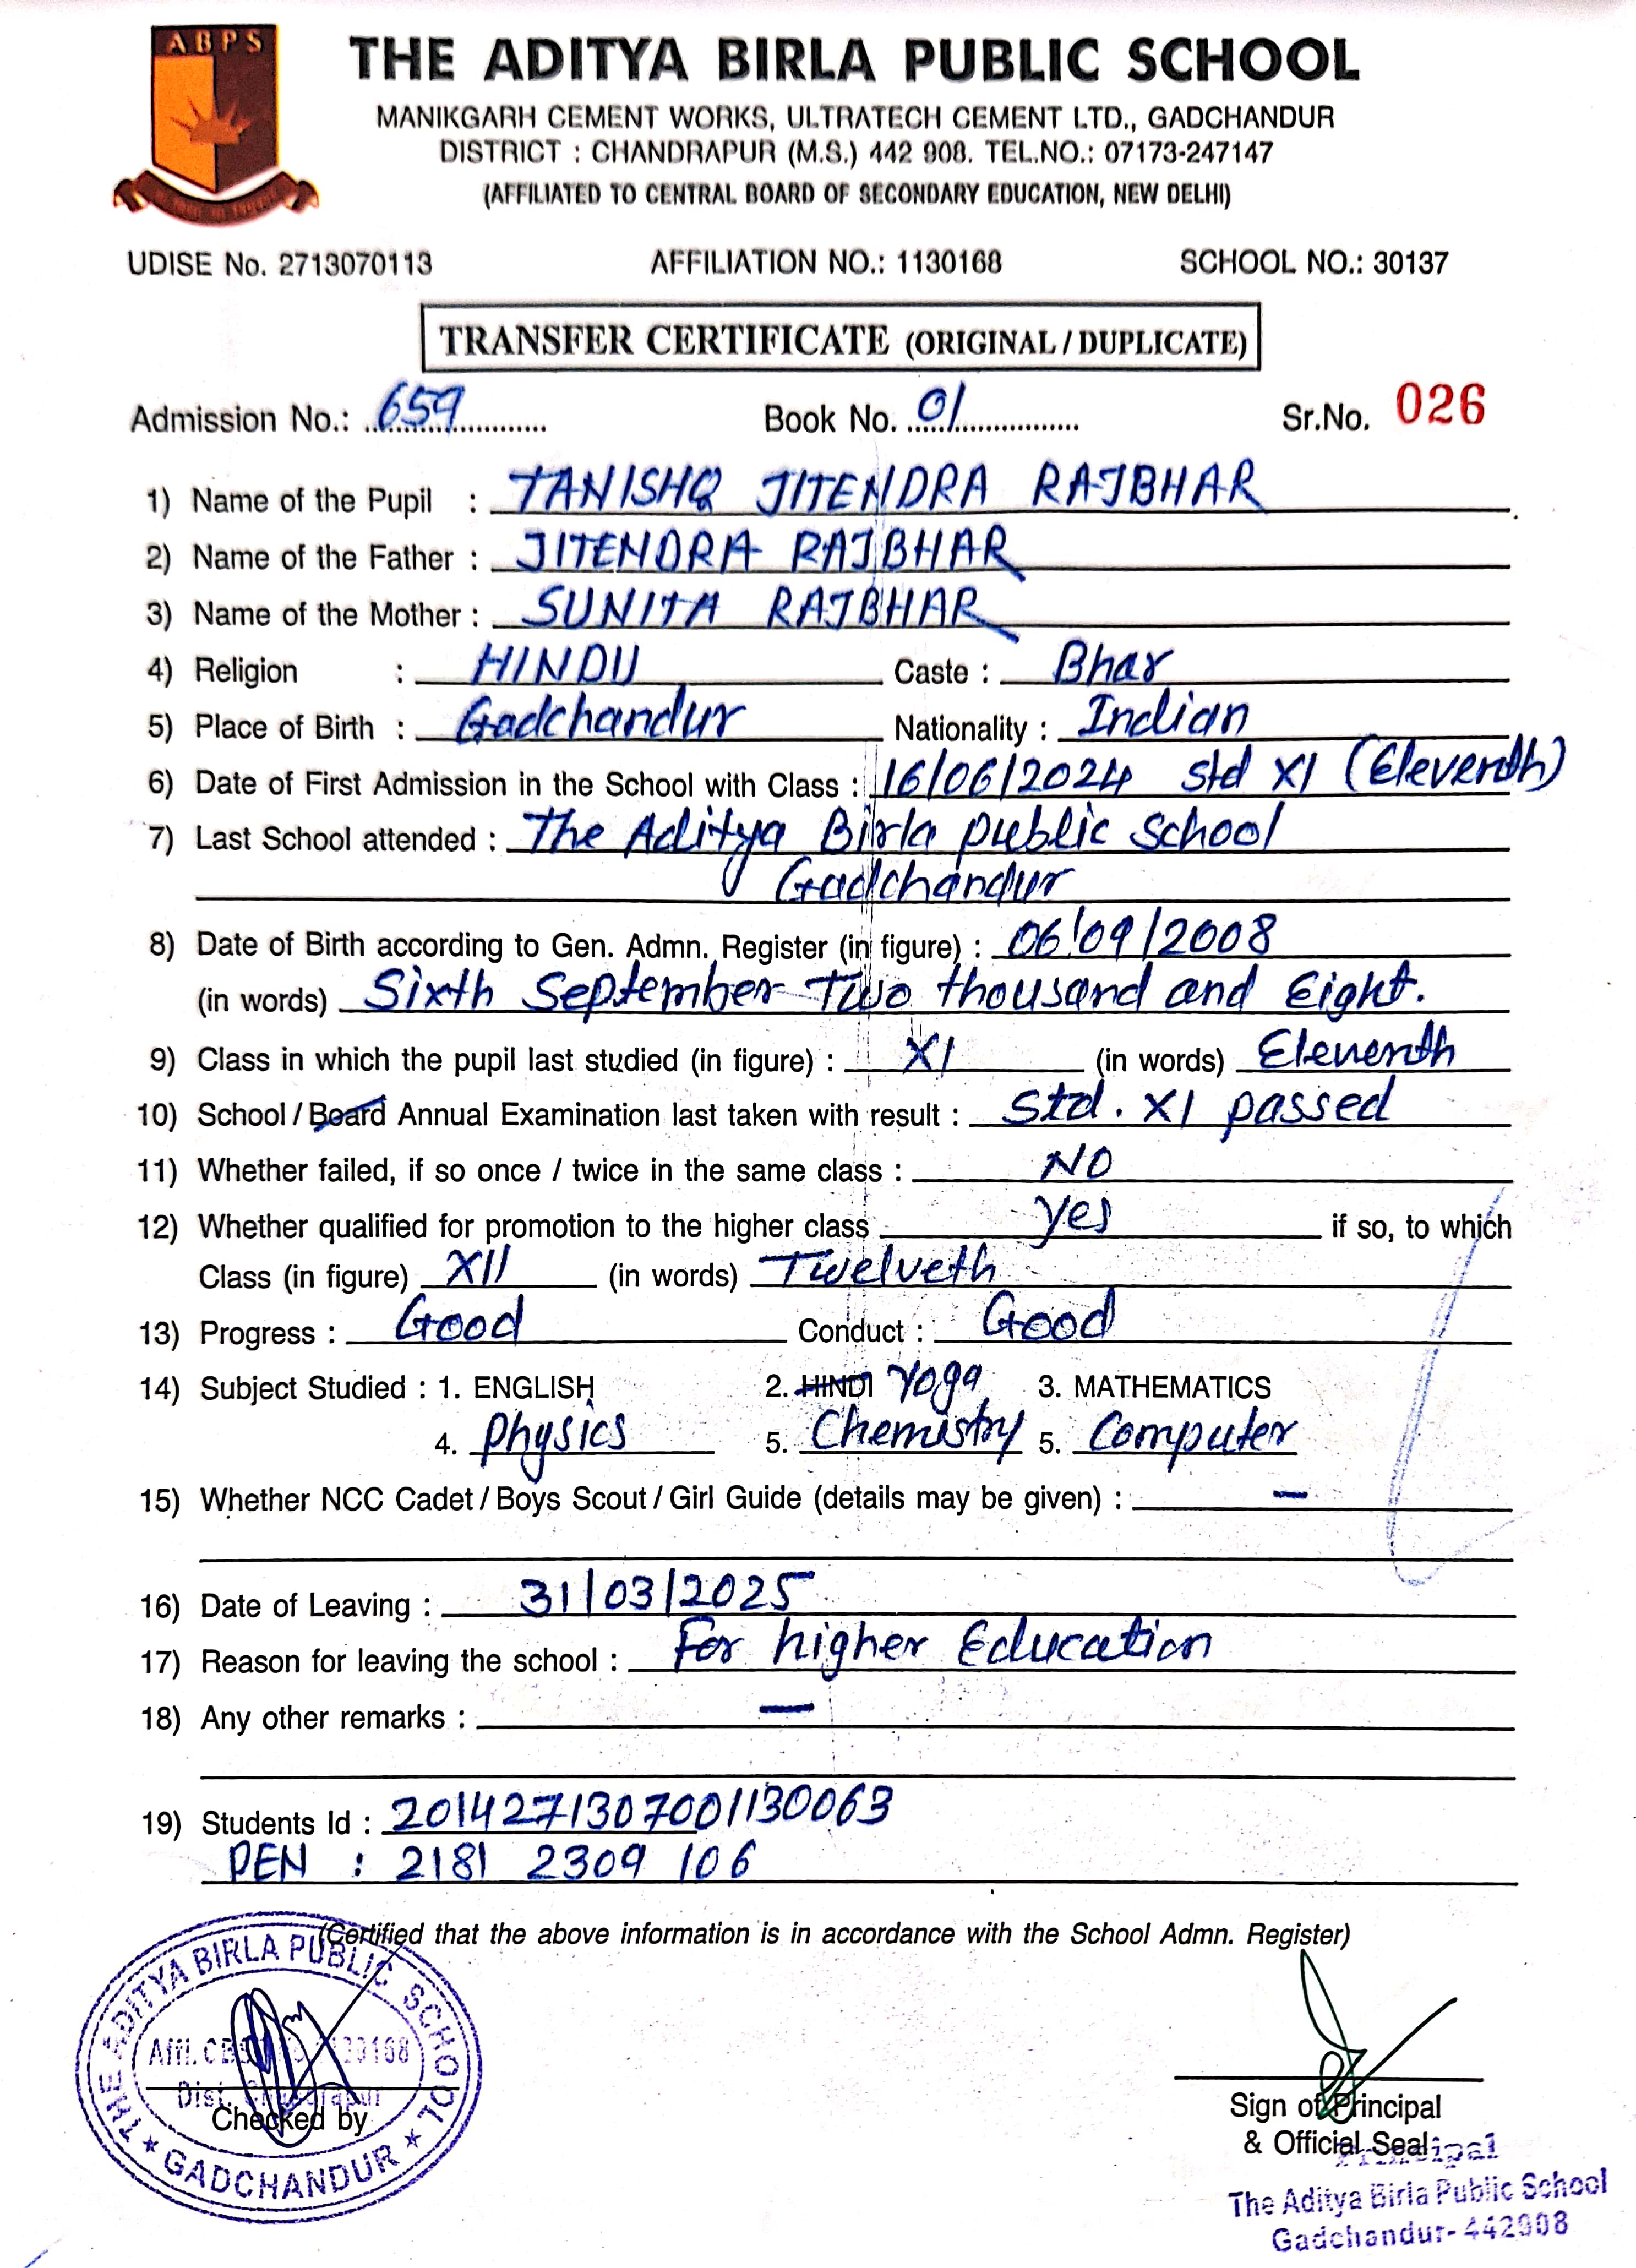 ABPS
THE ADITYA BIRLA PUBLIC SCHOOL
MANIKGARH CEMENT WORKS, ULTRATECH CEMENT LTD., GADCHANDUR
DISTRICT : CHANDRAPUR (M.S.) 442 908. TEL.NO.: 07173-247147
(AFFILIATED TO CENTRAL BOARD OF SECONDARY EDUCATION, NEW DELHI)
UDISE No. 2713070113 AFFILIATION NO.: 1130168 SCHOOL NO.: 30137
TRANSFER CERTIFICATE (ORIGINAL / DUPLICATE)
Admission No.: 659 Book No. 01 Sr.No. 026
1) Name of the Pupil : TANISHQ JITENDRA RAJBHAR
2) Name of the Father : JITENDRA RAJBHAR
3) Name of the Mother : SUNITA RAJBHAR
4) Religion : HINDU Caste : Bhar
5) Place of Birth : Gadchandur Nationality : Indian
6) Date of First Admission in the School with Class : 16/06/2024 Std XI (Eleventh)
7) Last School attended : The Aditya Birla public School
Gadchandur
8) Date of Birth according to Gen. Admn. Register (in figure) : 06/09/2008
(in words) Sixth September Two thousand and Eight.
9) Class in which the pupil last studied (in figure) : XI (in words) Eleventh
10) School / Board Annual Examination last taken with result : Std. XI passed
11) Whether failed, if so once / twice in the same class : NO
12) Whether qualified for promotion to the higher class yes if so, to which
Class (in figure) XII (in words) Twelveth
13) Progress : Good Conduct : Good
14) Subject Studied : 1. ENGLISH 2. HINDI Yoga 3. MATHEMATICS
4. Physics 5. Chemistry 5. Computer
15) Whether NCC Cadet / Boys Scout / Girl Guide (details may be given) : –
16) Date of Leaving : 31/03/2025
17) Reason for leaving the school : For higher Education
18) Any other remarks : —
19) Students Id : 2014271307001130063
PEN : 2181 2309 106
(Certified that the above information is in accordance with the School Admn. Register)
THE ADITYA BIRLA PUBLIC SCHOOL
Dist. Chandrapur
★ GADCHANDUR ★
Checked by
Sign of Principal
& Official Seal
Principal
The Aditya Birla Public School
Gadchandur- 442908